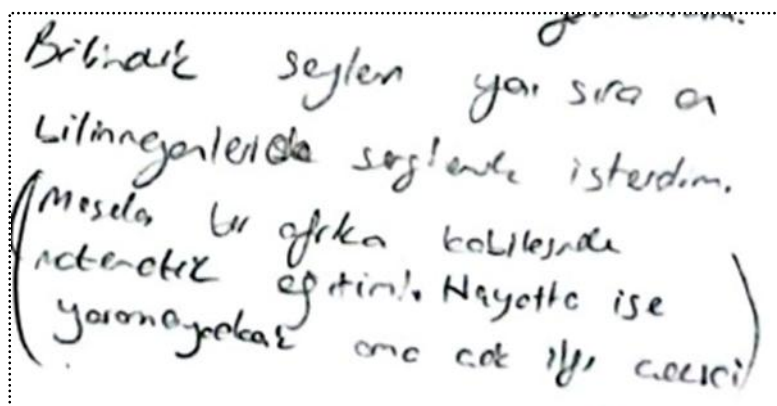 Bilindik şeylerin yanı sıra az
bilinmeyenleride söylemek isterdim.
(Mesela bir afrika kabilesinde
matematik eğitimi. Hayatta ise
yaramayacak ama çok ilgi çekici)